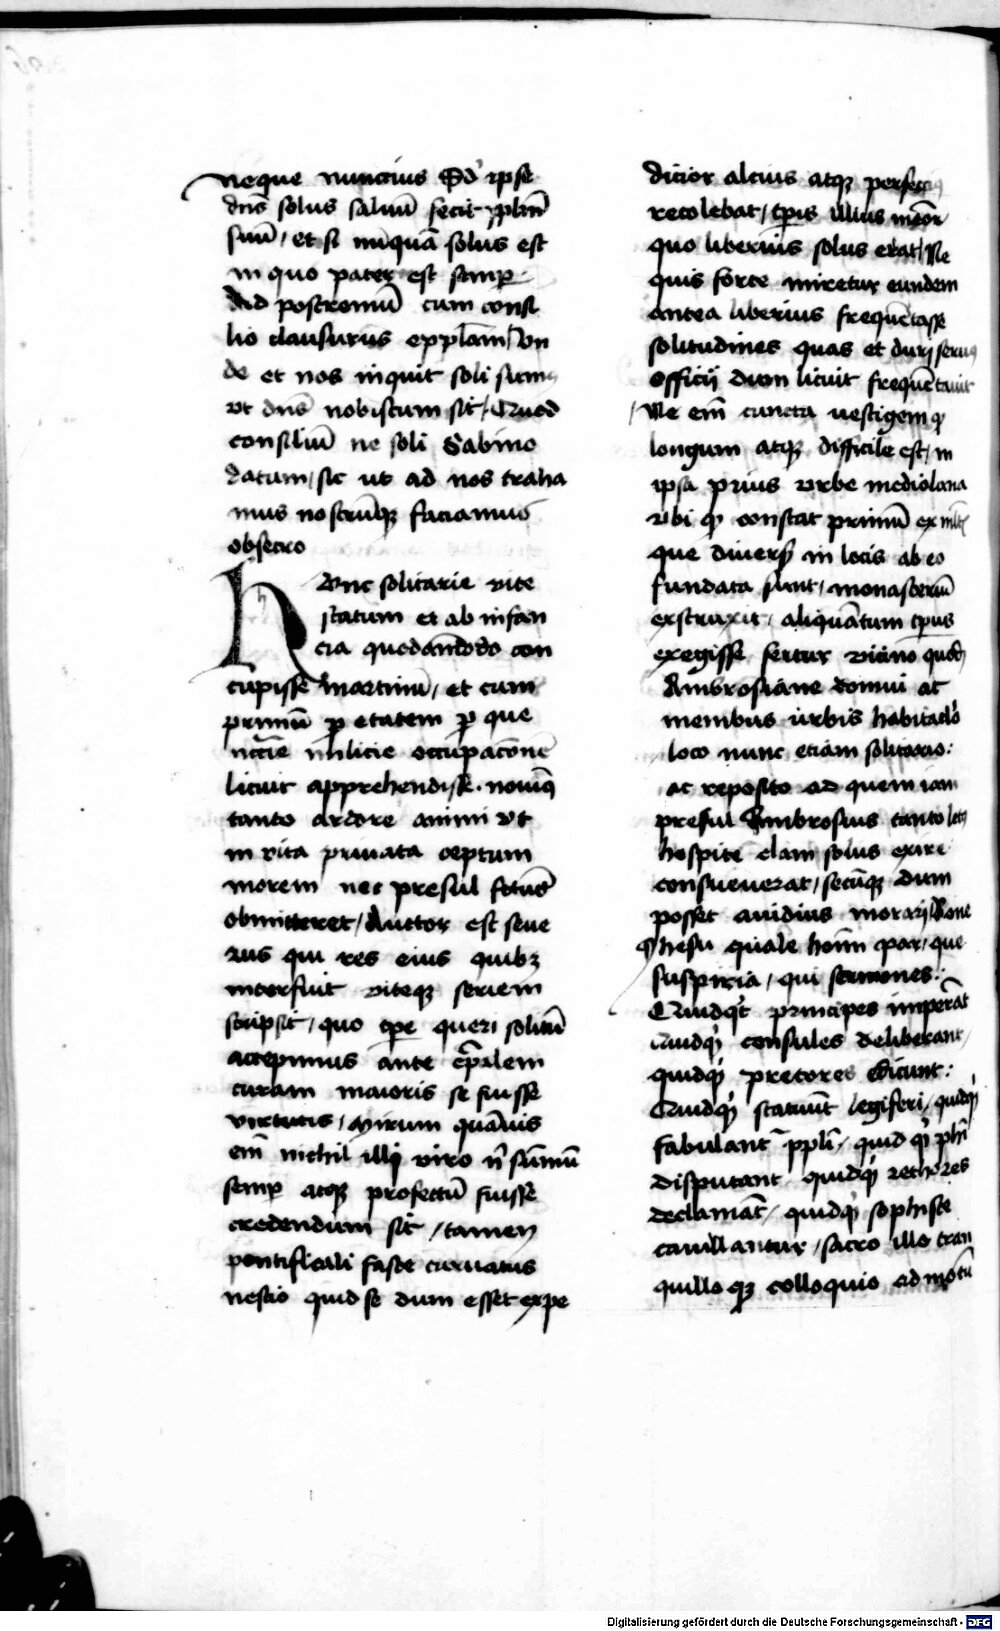 neque nuncius Sd' ipse
dn̄s solus saluū fecit pplm̄
suū / et si nūquā solus est
in quo pater est semp
Ad postremū cum consi
lio clausurus epp̄lam / Vn
de et nos inquit soli simus
vt dn̄s nobiscum sit / Quod
consiliū ne soli Sabino
datum / sic ut ad nos traha
mus nostrūqꝫ faciamus
obsecro
HVnc solitarie vite
statum et ab infan
cia quodāmodo con
cupisse Martinū / et cum
primū ꝑ etatem ꝑ que
nccīe milicie occupacōnē
licuit apprehendisse . nouiqꝫ
tanto ardore animi vt
in vita priuata ceptum
morem nec presul fctus
obmitteret / Auctor est seue
rus qui res eius quibꝫ
interfuit viteqꝫ seriem
scripsit / quo tp̄e queri solitū
accepimus ante ep̄alem
curam maioris se fuisse
virtutis / Mirum quāuis
em̄ nichil illi viro n̄ sūmū
semp atqꝫ profectū fuisse
credendum sit / tamen
pontificali fasce curuatus
nescio quid se dum esset expe
dicior alcius atqꝫ perfectius
recolebat / tp̄is illius memor
quo liberius solus erat / Ne
quis forte miretur eundem
antea liberius frequētasse
solitudines quas et duri seruus
officij dum licuit frequētauit
/ Ne em̄ cuncta vestigem qꝫ
longum atqꝫ difficile est / in
ipsa prius vrbe mediolana
vbi qꝫ constat primū ex mlt̄
que diuersis in locis ab eo
fundata sunt / monasteriū
exstruxit / aliquātum tp̄us
exegisse fertur vicino quodā
Ambrosiane domui ac
menibus vrbis habitacl'o
loco nunc etiam solitario :
ac reposito ad quem iam
presul Ambrosius tanto letus
hospite clam solus exire
consueuerat / secūqꝫ dum
posset auidius morari / Bone
Jhesu quale hoīm par / que
suspiria / qui sermones :
Quidqͥd principes imperāt
quidqͥd consules deliberant /
quidqͥd pretores edicunt :
Quidqͥd statuūt legiferi / quidqͥd
fabulant̄ ppl'i / quidqͥd phī
disputant quidqͥd rethores
declamāt / quidqͥd sophiste
cauillantur / sacro illo tran
quilloqꝫ colloquio admotū